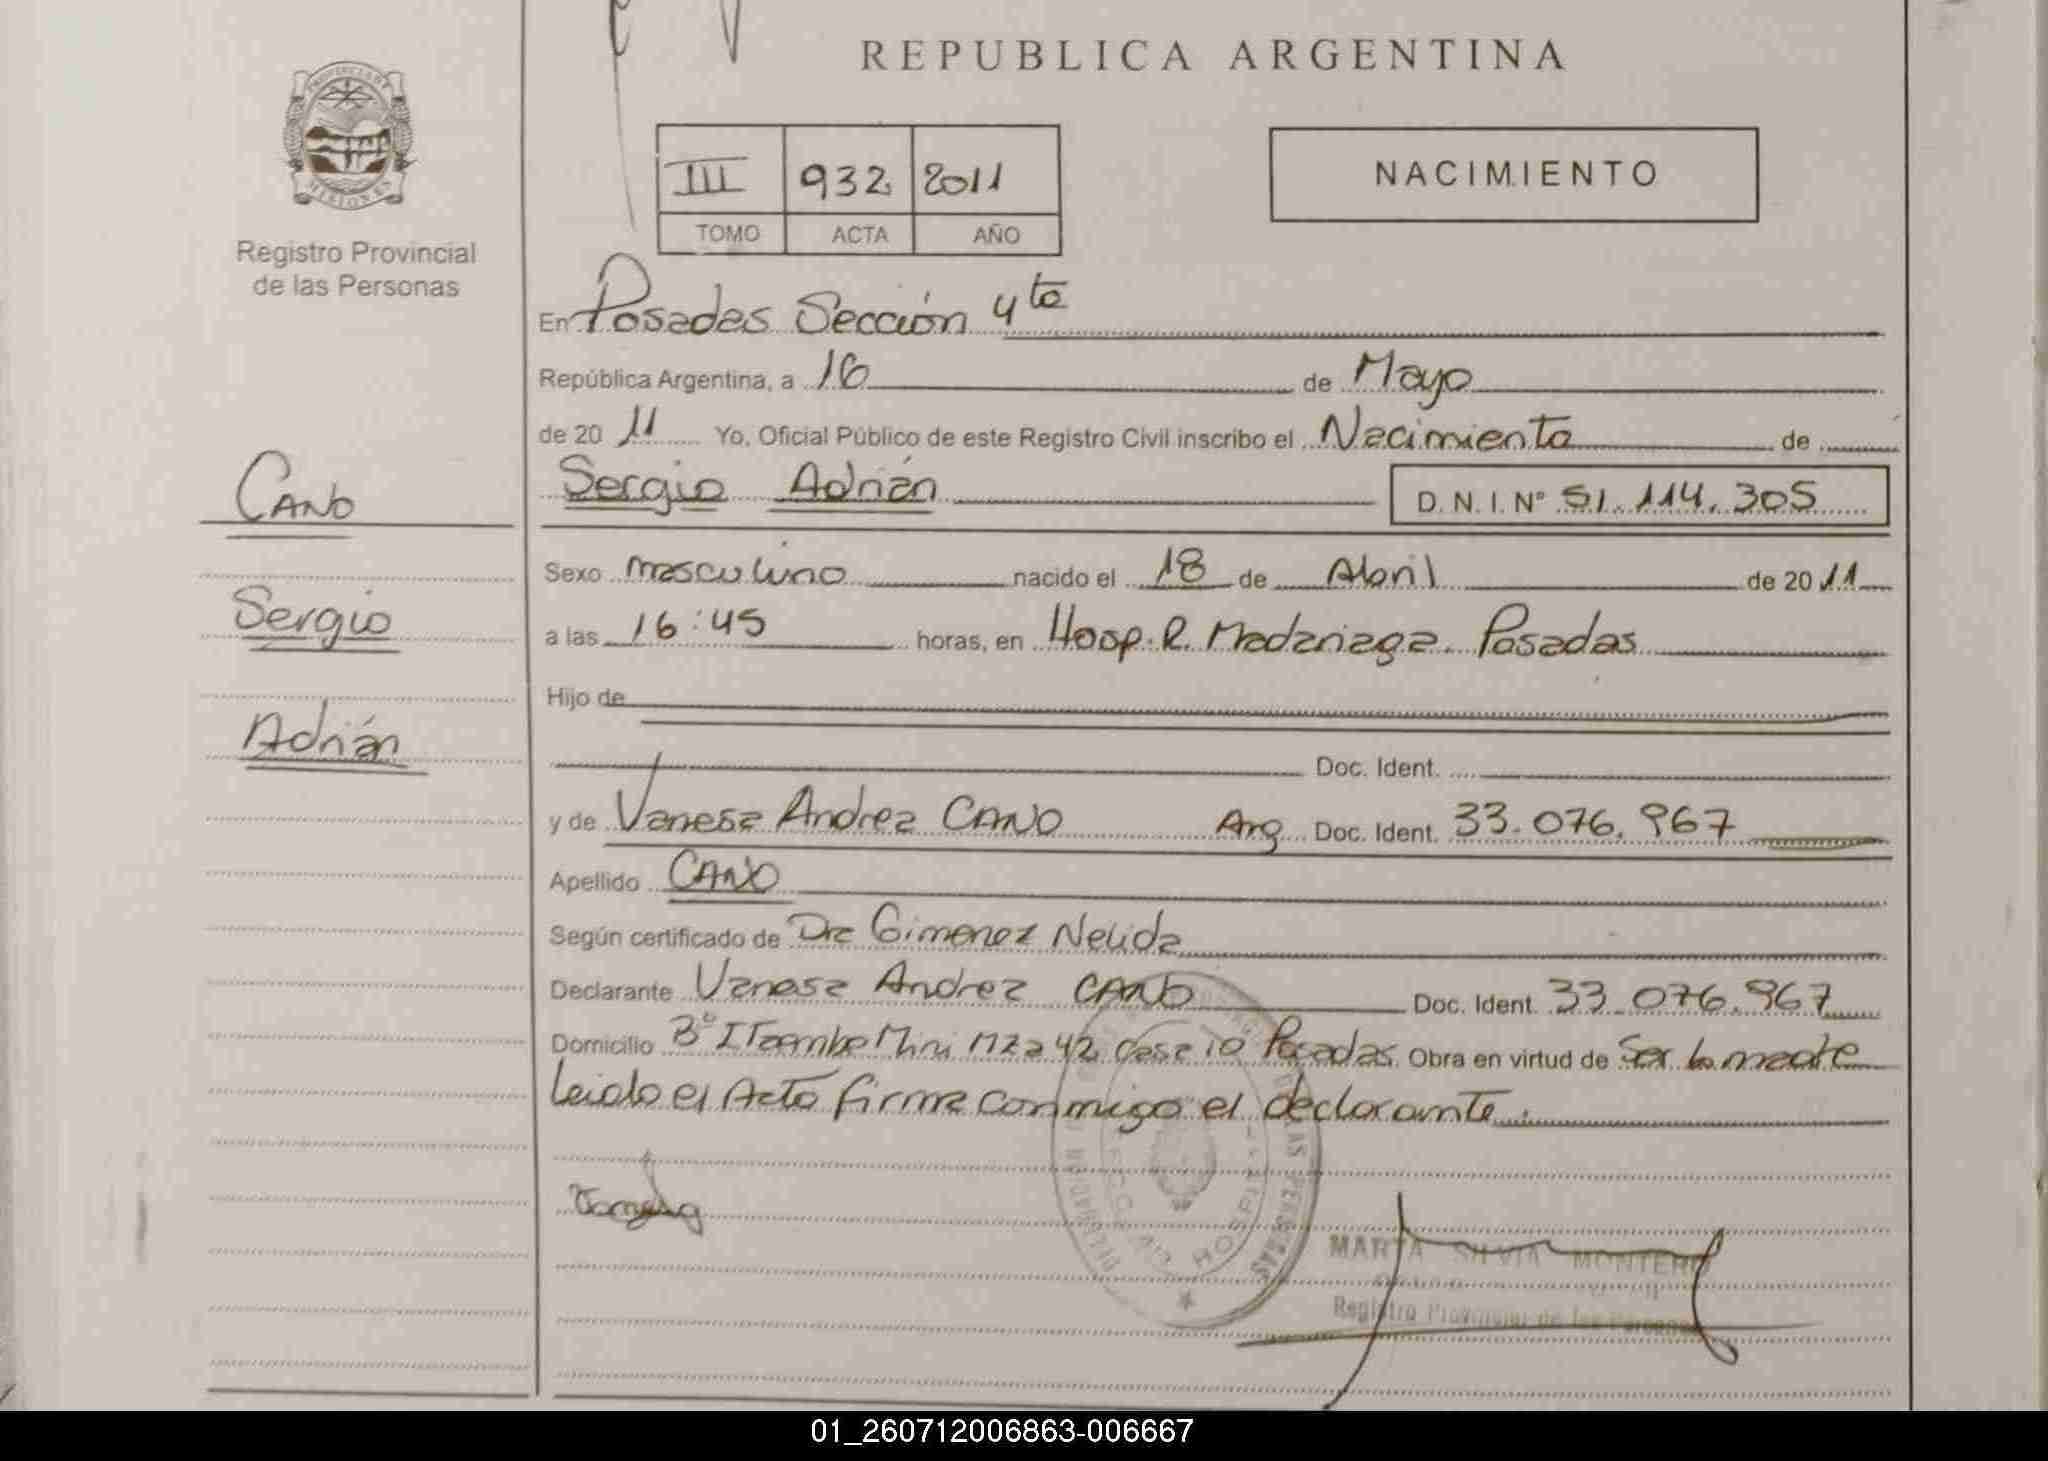 REPUBLICA ARGENTINA
PROVINCIA DE
MISIONES
Registro Provincial
de las Personas
III 932 2011
TOMO ACTA AÑO
NACIMIENTO
En Posadas Sección 4ta
República Argentina, a 16 de Mayo
de 2011 Yo, Oficial Público de este Registro Civil inscribo el Nacimiento de
Sergio Adrián D. N. I. Nº 51.114.305
CANO
Sergio
Adrián
Sexo masculino nacido el 18 de Abril de 2011
a las 16:45 horas, en Hosp. R. Madariaga. Posadas
Hijo de
Doc. Ident.
y de Vanesa Andrea CANO Arg Doc. Ident. 33.076.967
Apellido CANO
Según certificado de Dra Gimenez Nelida
Declarante Vanesa Andrea CANO Doc. Ident. 33.076.967
Domicilio Bº Itaembe Mini Mza 42 casa 10 Posadas Obra en virtud de Ser la madre
Leido el Acta firma conmigo el declarante.
DE LAS PERSONAS
HOSPITAL
MARTA SILVIA MONTERO
Registro Provincial de las Personas
01_260712006863-006667